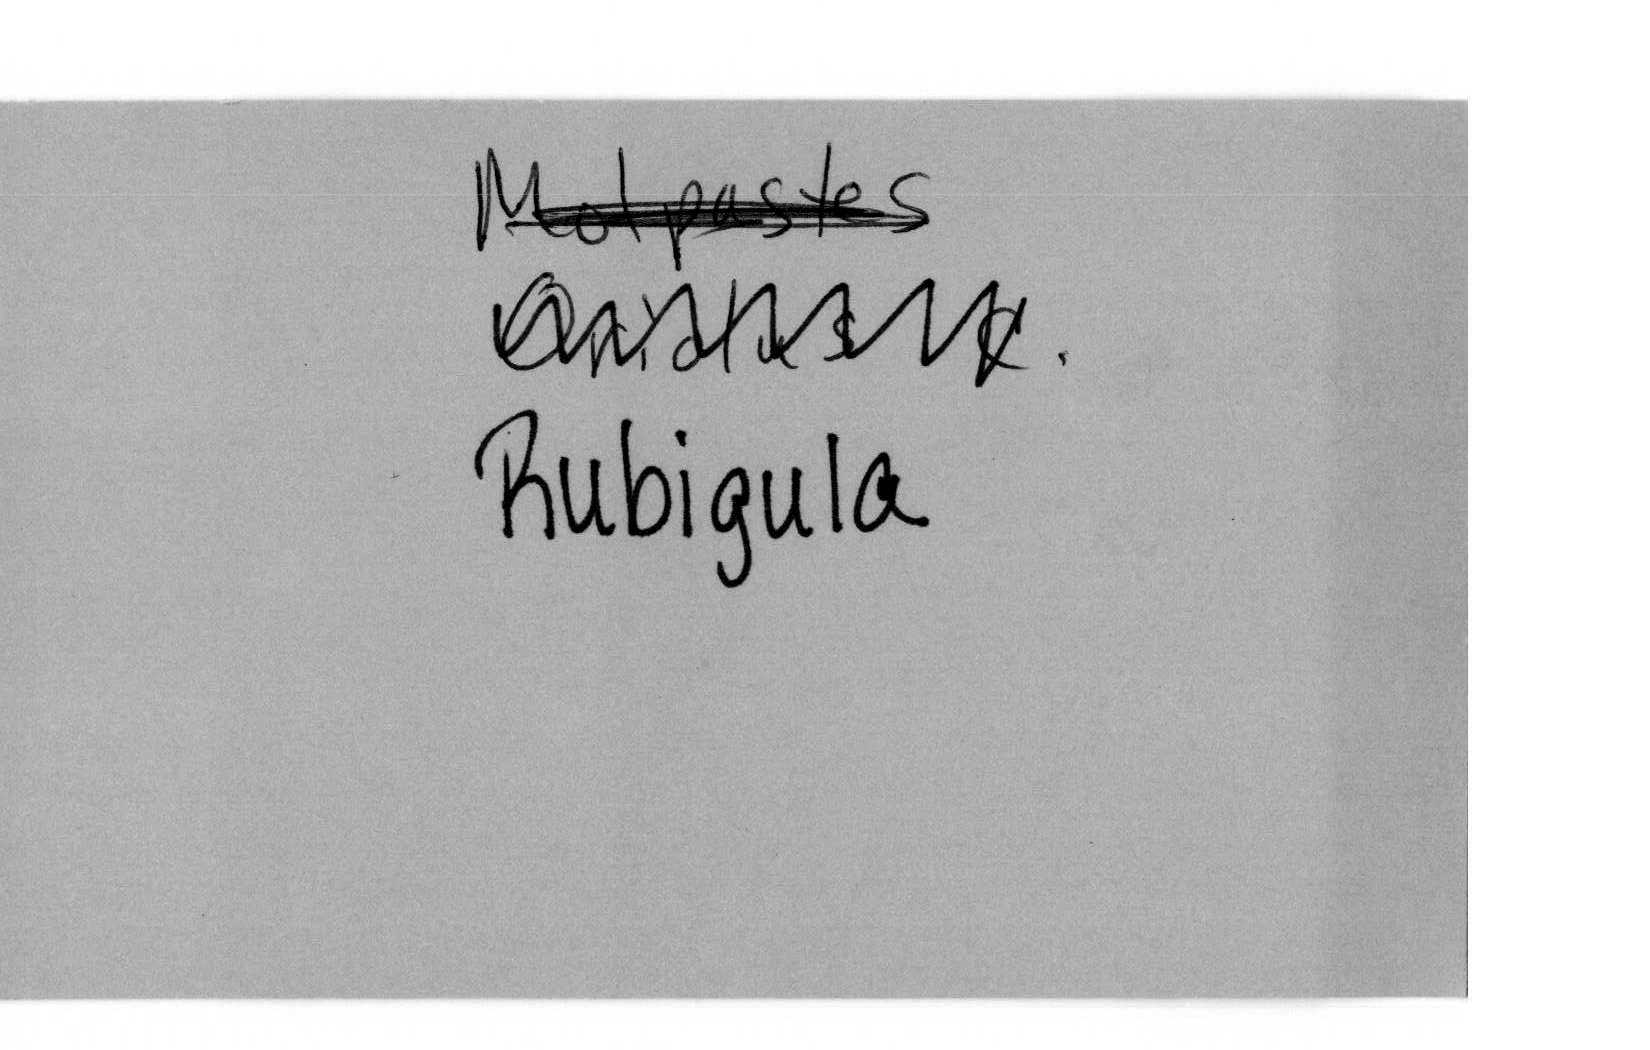 Molpastes
Rubigula